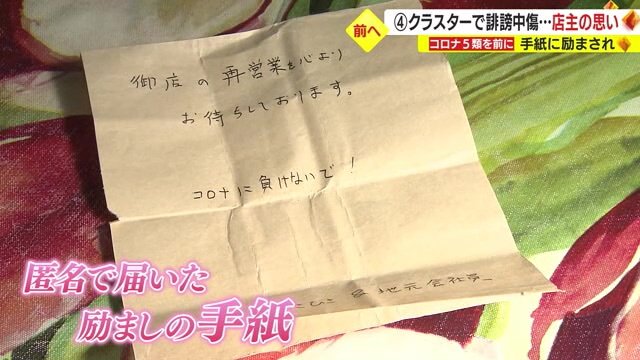 前へ
④クラスターで誹謗中傷…店主の思い
コロナ5類を前に 手紙に励まされ
御店の再営業を心より
お待ちしております。
コロナに負けないで!
地元会社員
匿名で届いた
励ましの手紙